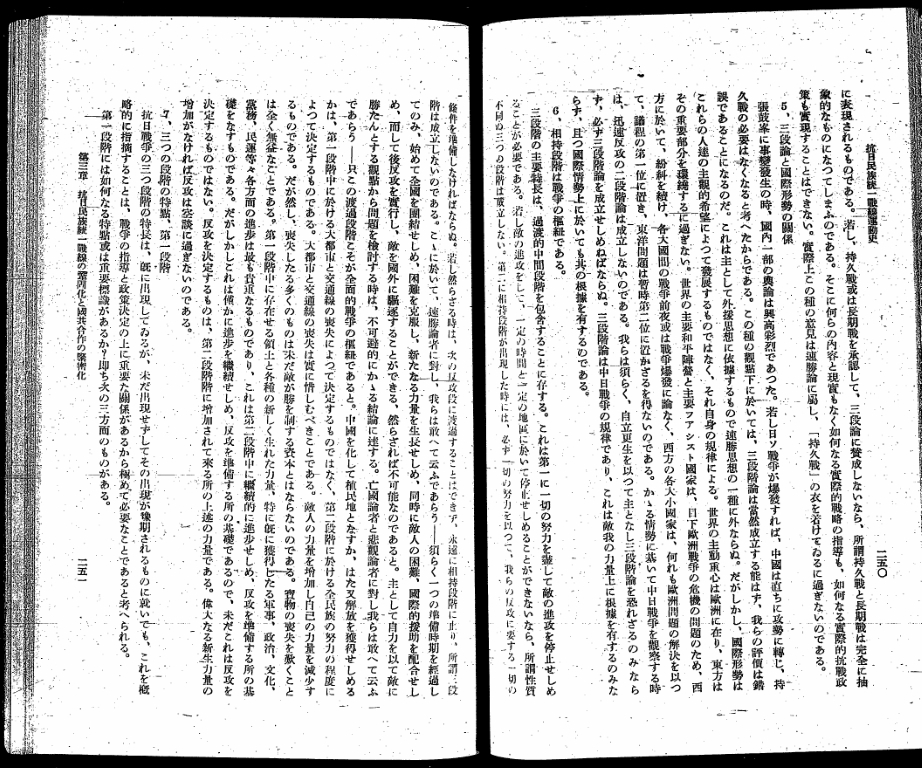 抗日民族統一戰線運動史
二五〇
に表現されるものである。若し、持久戰或は長期戰を承認して、三段論に賛成しないなら、所謂持久戰と長期戰は完全に抽
象的なものになつてしまふのである。そこに何らの内容と現實もなく如何なる實際的戰略の指導も、如何なる實際的抗戰政
策も實現することはできない。實際上この種の意見は速勝論に屬し、「持久戰」の衣を着けてゐるに過ぎないのである。
5、三段論と國際形勢の關係
張鼓峯に事變發生の時、國内一部の輿論は興高彩烈であつた。若し日ソ戰爭が爆發すれば、中國は直ちに攻勢に轉じ、持
久戰の必要はなくなると考へたからである。この種の觀點下に於いては、三段階論は當然成立する能はず、我らの評價は錯
誤であることになるのだ。これは主として外援思想に依據するもので速勝思想の一種に外ならぬ。だがしかし、國際形勢は
これらの人達の主觀的希望によつて發展するものではなく、それ自身の規律による。世界の主動重心は歐洲に在り、東方は
その重要部分を環繞するに過ぎない。世界の主要和平陣營と主要ファシスト國家は、目下歐洲戰爭の危機の問題のため、西
方に於いて、紛糾を續け、各大國間の戰爭前夜或は戰爭爆發に論なく、西方の各大小國家は、何れも歐洲問題の解決を以つ
て、議程の第一位に置き、東洋問題は暫時第二位に置かざるを得ないのである。かゝる情勢に基いて中日戰爭を觀察する時
は、迅速反攻の二段階論は成立しないのである。我らは須らく、自立更生を以つて主となし三段階論を恐れざるのみなら
ず、必ず三段階論を成立せしめねばならぬ。三段階論は中日戰爭の規律であり、これは敵我の力量上に根據を有するのみな
らず、且つ國際情勢上に於いても其の根據を有するのである。
6、相持段階は戰爭の樞紐である。
三段階の主要特長は、過渡的中間段階を包含することに存する。これは第一に一切の努力を盡して敵の進攻を停止せしめ
ることが必要である。若し敵の進攻をして、一定の時間と一定の地區に於いて停止せしめることができないなら、所謂性質
不同の三つの段階は成立しない。第二に相持段階が出現した時には、必ず一切の努力を以つて、我らの反攻に要する一切の
條件を準備しなければならぬ。若し然らざる時は、次の反攻段に渡過することはできず、永遠に相持段階に止り、所謂三段
階は成立しないのである。こゝに於いて、速勝論者に對し、我らは敢へて云ふであらう――須らく一つの準備時期を經過し
てのみ、始めて全國を團結せしめ、困難を克服し、新たなる力量を生長せしめ、同時に敵人の困難、國際的援助を配合せし
め、而して後反攻を實行し、敵を國外に驅逐することができる、然らざれば不可能なのであると。主として自力を以て敵に
勝たんとする觀點から問題を檢討する時は、不可避的にかゝる結論に達する。亡國論者と悲觀論者に對し我らは敢へて云ふ
であらう――只この渡過段階こそが全面的戰爭の樞紐であると。中國を化して植民地となすか、はた又解放を獲得せしめる
かは、第一段階中に於ける大都市と交通線の喪失によつて決定するものではなく、第二段階に於ける全民族の努力の程度に
よつて決定するものである。大都市と交通線の喪失は實に惜しむべきことである。敵人の力量を増加し自己の力量を減少す
るものである。だが然し、喪失したる多くのものは未だ敵が勝を制する資本とはならないのである。寶物の喪失を歎くこと
は全く無益なことである。第一段階中に存在せる領土と各種の新しく生れた力量、特に既に獲得したる軍事、政治、文化、
黨務、民運等々各方面の進歩は最も貴重なるものであり、これは第二段階中に繼續的に進歩せしめ、反攻を準備する所の基
礎をなすものである。だがしかしこれは僅かに進歩を繼續せしめ、反攻を準備する所の基礎であるので、未だこれは反攻を
決定するものではない。反攻を決定するものは、第二段階階に増加されて來る所の上述の力量である。偉大なる新生力量の
増加がなければ反攻は空談に過ぎないのである。
7、三つの段階の特點、第一段階
抗日戰爭の三つ段階の特長は、既に出現してゐるが、未だ出現せずしてその出現が豫期されるものに就いでも、これを概
略的に指摘することは、戰爭の指導と政策決定の上に重要な關係があるから極めて必要なことであると考へられる。
第一段階には如何なる特點或は重要標識があるか？即ち次の三方面のものがある。
第三章 抗日民族統一戰線の鞏固化と國共合作の緊密化
二五一